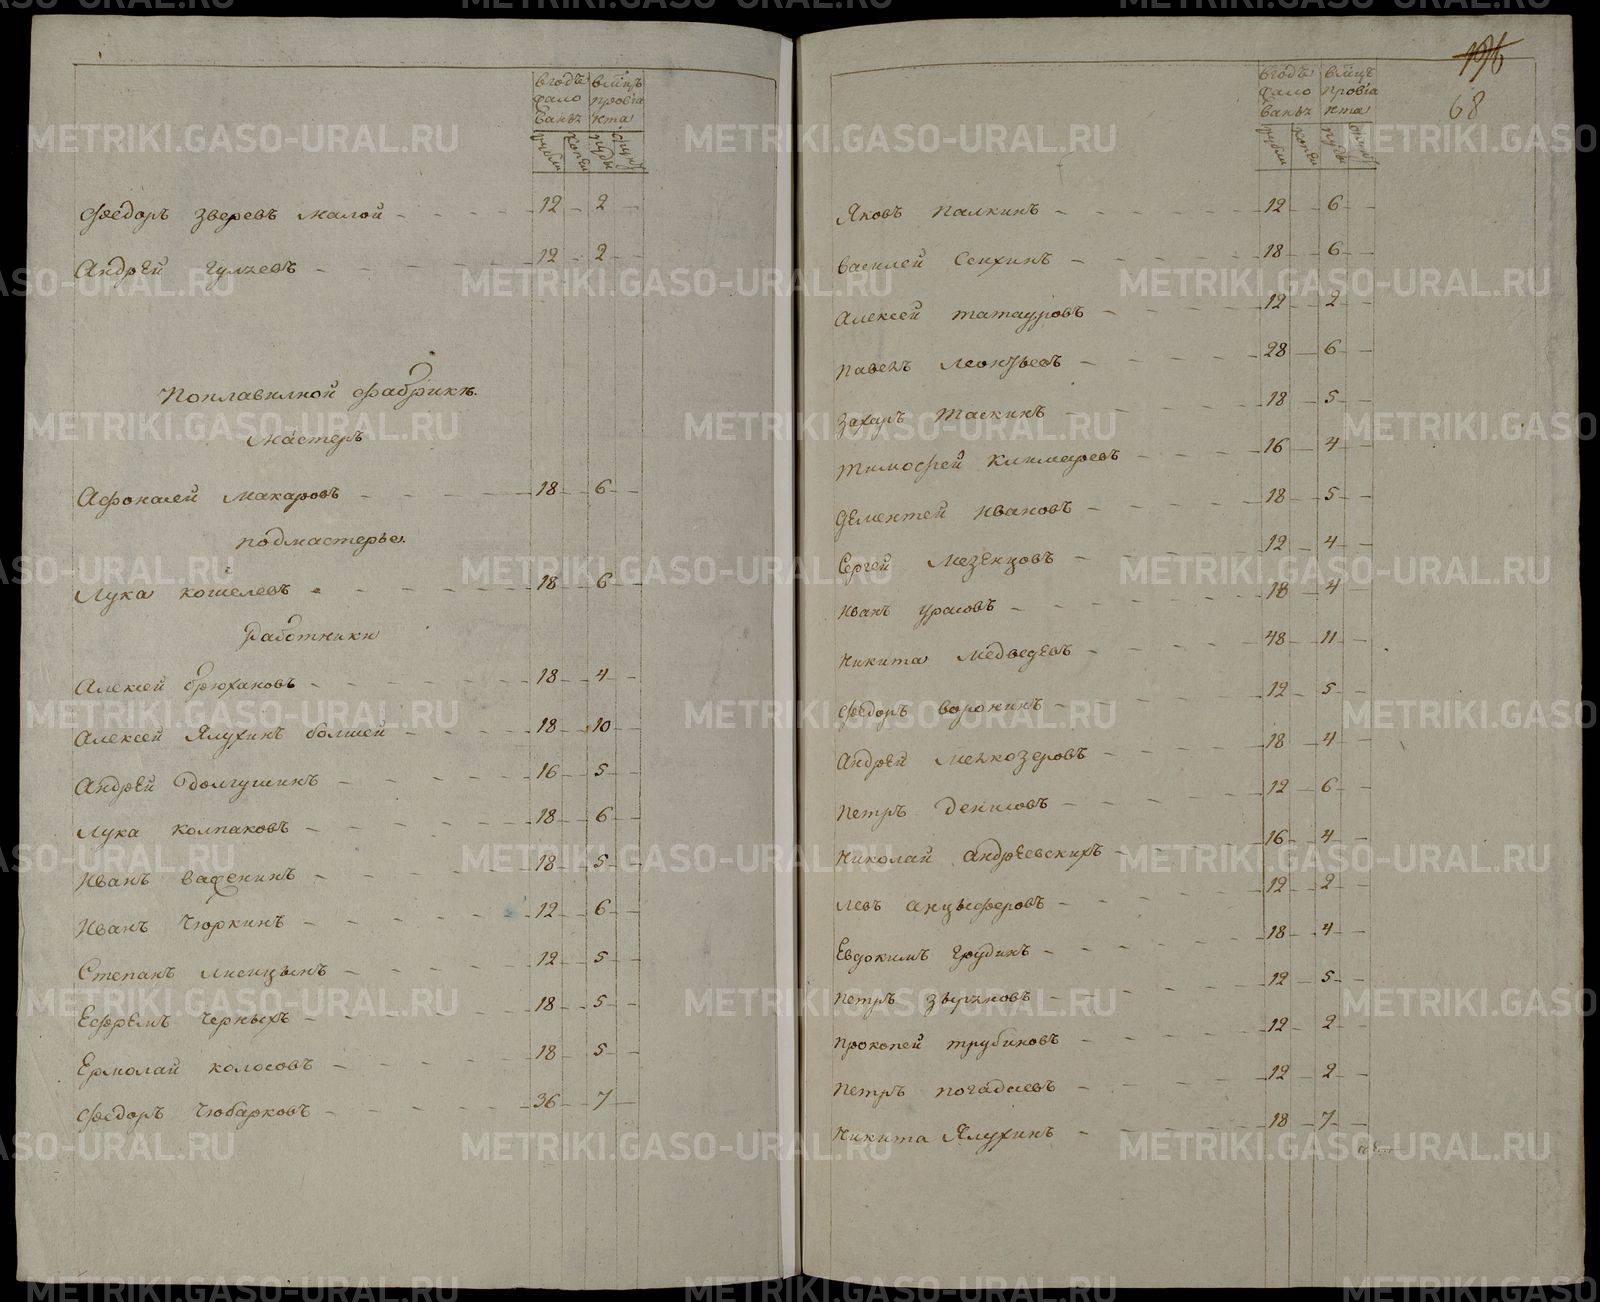 вгодъ вмцъ
жало провiа
ванья нта
рубли копеи пуды фунты
Федоръ Зверевъ малой 12 2
Андрей Гулаевъ 12 2
Поплавилной фабрике.
Мастеръ
Афонасей Макаровъ 18 6
подмастерье.
Лука кошелевъ 18 6
Работники
Алексей брюхановъ 18 4
Алексей Ялухинъ болшей 18 10
Андрей Долгушинъ 16 5
Лука колпаковъ 18 6
Иванъ Вафенинъ 18 5
Иванъ Чюркинъ 12 6
Степанъ Лисицынъ 12 5
Ефремъ Черныхъ 18 5
Ермолай колосовъ 18 5
Федоръ Чюбарковъ 36 7
196
68
вгодъ вмцъ
жало провiа
ванья нта
рубли копеи пуды фунты
Яковъ Палкинъ 12 6
Василей Сенхинъ 18 6
Алексей татауровъ 12 2
Павелъ Леонтьевъ 28 6
Захаръ Таскинъ 18 5
Тимофей 16 4
Дементей Ивановъ 18 5
Сергей Мезенцовъ 12 4
Иванъ Урасовъ 18 4
Никита Медведевъ 48 11
Федоръ воронинъ 12 5
Андрей Мелкозеровъ 18 4
Петръ Денисовъ 12 6
Николай Андреевскихъ 16 4
Левъ Анцыферовъ 12 2
Евдокимъ Грудинъ 18 4
Петръ Зыряновъ 12 5
Прокопей трубиновъ 12 2
Петръ погадаевъ 12 2
Никита Ялухинъ 18 7
METRIKI.GASO-URAL.RU